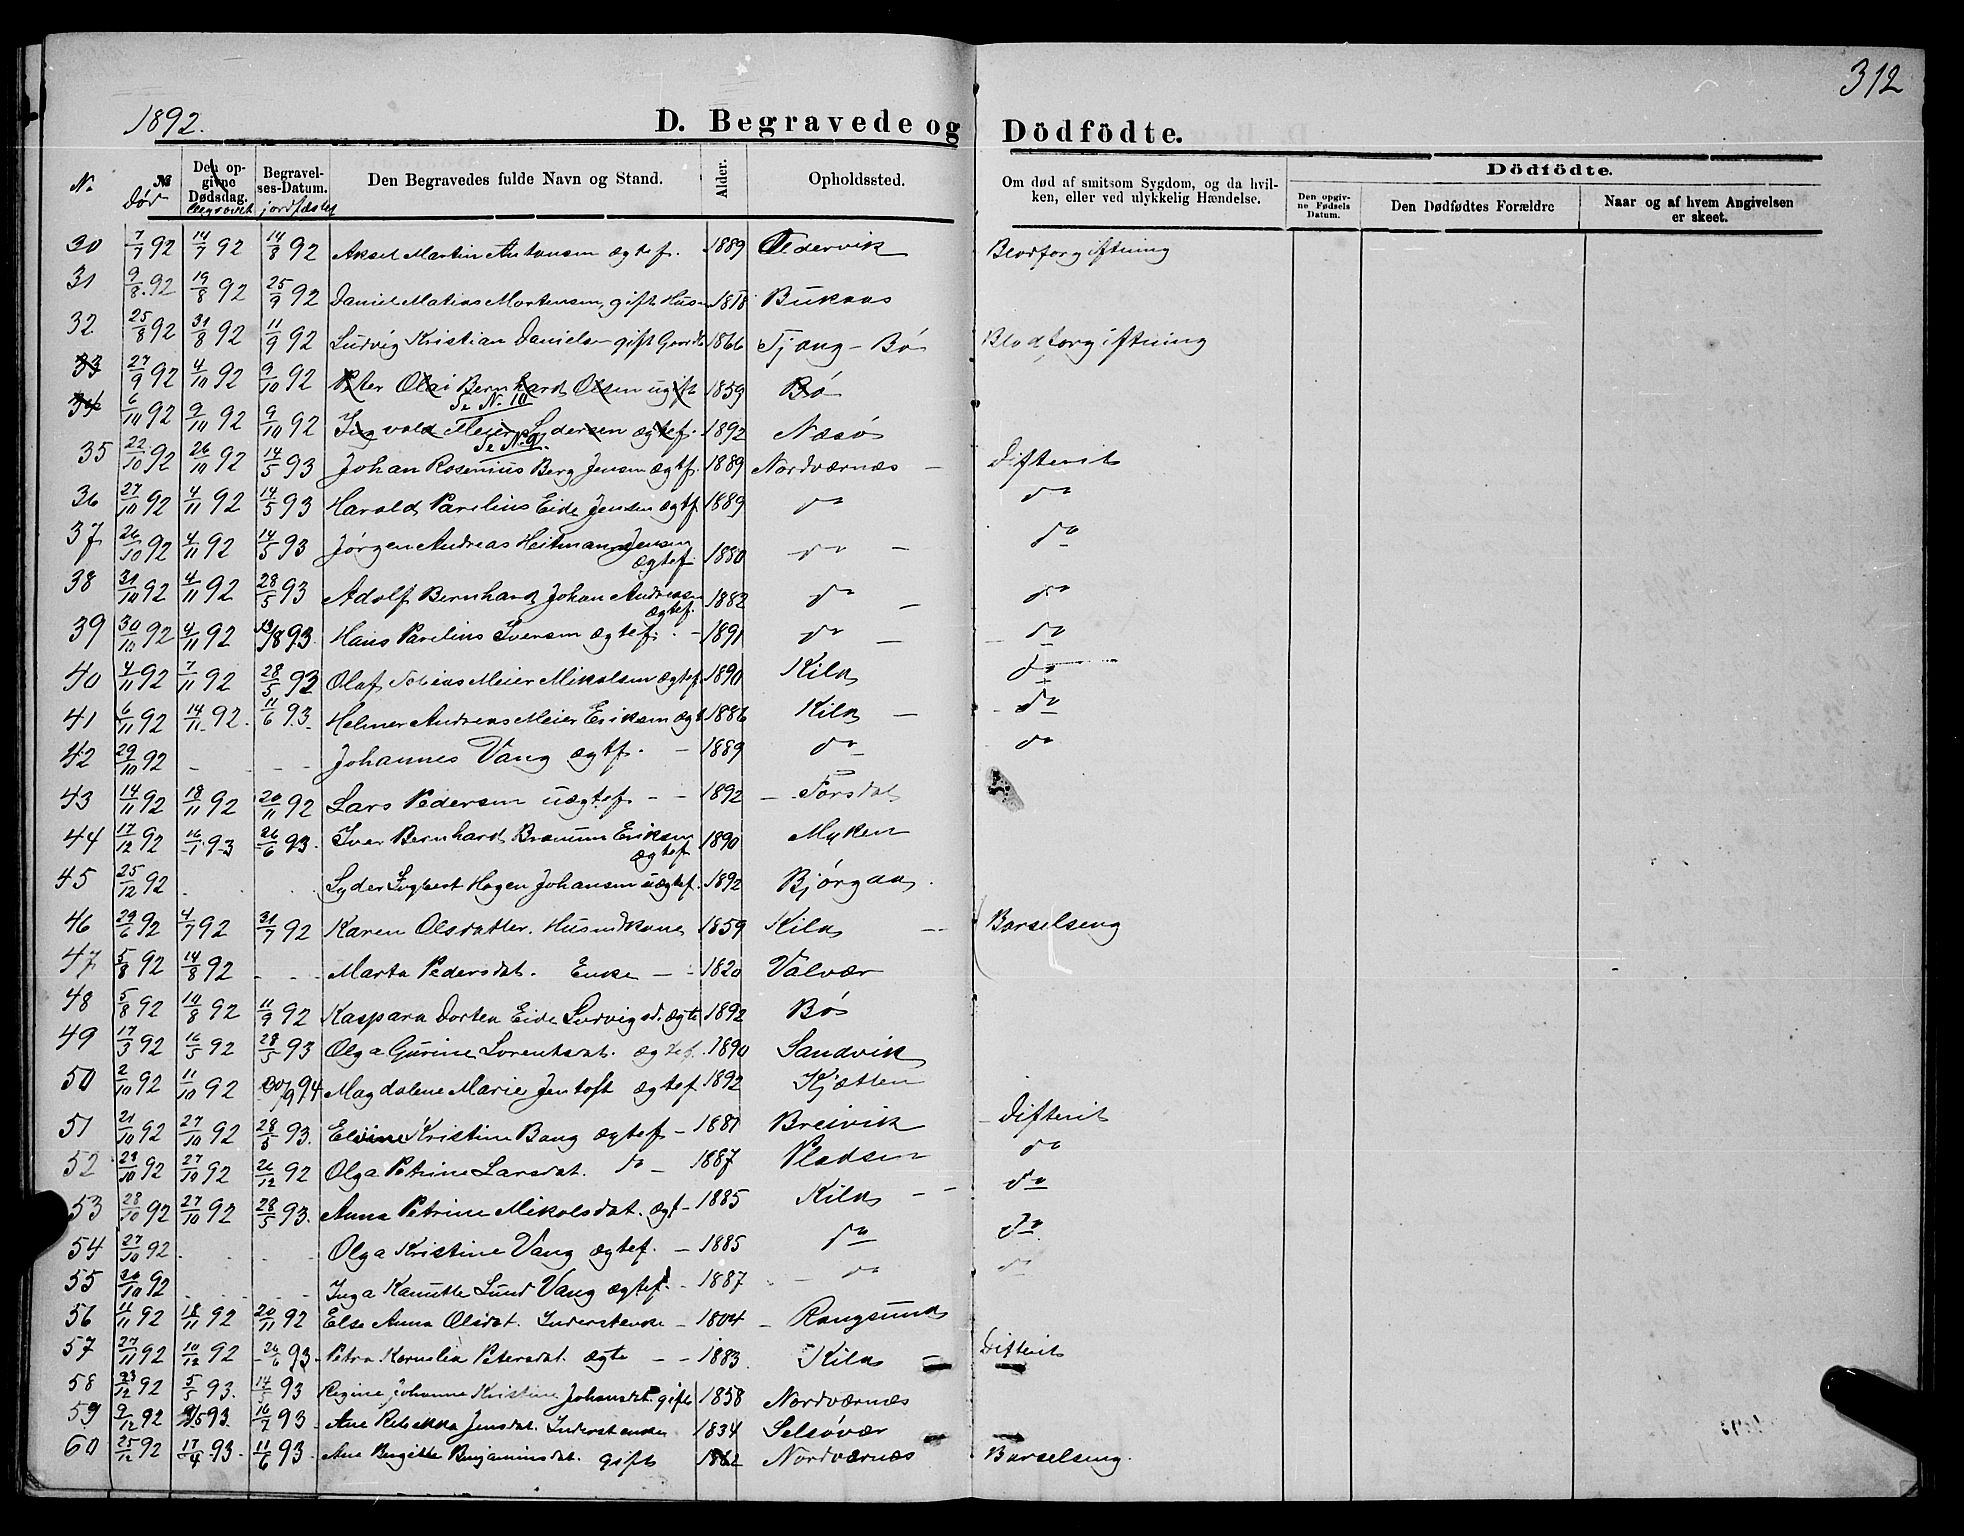 312
1892.
D. Begravede og Dödfödte.
No
No Død
Den opgivne Dødsdag. Begravet
Begravelses-Datum. jordfæstet
Den Begravedes fulde Navn og Stand.
Alder.
Opholdssted.
Om død af smitsom Sygdom, og da hvilken, eller ved ulykkelig Hændelse.
Dödfödte.
Den opgivne Fødsels Datum.
Den Dødfødtes Forældre
Naar og af hvem Angivelsen er skeet.
30 7/7 92 14/7 92 14/8 92 Aksel Martin Antonsen ægtef. 1889 Tedervik Blodforgiftning
31 9/8 92 19/8 92 25/9 92 Daniel Matias Mortensen, gift Husm. 1818 Bukaas
32 25/8 92 31/8 92 11/9 92 Ludvig Kristian Danielsen gift Gaardb 1866 Tjong - Bø Blodforgiftning
33 27/9 92 4/10 92 9/10 92 Peter Olai Bernhard Olsen ugift 1859 Bø
Se N. 10
34 6/10 92 9/10 92 9/10 92 Ingvald Meier Edersen ægtef. 1892 Næsø
Se N. 9.
35 22/10 92 26/10 92 14/5 93 Johan Rosenius Berg Jensen ægtf. 1889 Nordværnæs - Difterit
36 27/10 92 4/11 92 14/5 93 Harold Parelius Eide Jensen ægtf 1889 do do
37 26/10 92 4/11 92 14/5 93 Jørgen Andreas Heitmann Jensen ægtef. 1880 do - do
38 31/10 92 4/11 92 28/5 93 Adolf Bernhard Johan Andreasen ægtef. 1882 do - do
39 30/10 92 4/11 92 13/8 93. Hans Parelius Iversen ægtef. - 1891 do - do
40 4/11 92 7/11 92 28/5 93 Olaf Tobias Meier Mikalsen ægtef 1890 Kila do
41 6/11 92 14/11 92. 11/6 93. Helmer Andreas Meier Eriksen ægt 1886 Kila - do
42 29/10 92 - - - Johannes Vang ægtf. - 1889 do do
43 14/11 92 18/11 92 20/11 92 Lars Pedersen uægtef. - - 1892 - Torsdal
44 17/12 92 16/1 93 26/6 93. Iver Bernhard Bramm Eriksen ægtef 1890 Myken
45 25/12 92 Lyder Engbert Hagen Johansen uægtef. 1892 Bjørgaas.
46 29/6 92 4/7 92 31/7 92 Karen Olsdatter. Husmdkone 1859 Kila - Barselseng
47 5/8 92 14/8 92 - - Marta Pedersdat. Enke - - 1820 Valvær
48 5/8 92 10/8 92 11/9 92 Kaspara Dortea Eide Ludvigsd. ægte 1892 Bø
49 17/3 92 16/5 92 28/5 93 Olga Gurine Lorentsdat. ægtef. 1890 Sandvik
50 2/10 92 11/10 92 /9 94 Magdalene Marie Jentoft ægtef 1892 Kjætten
51 21/10 92 27/10 92 28/5 93. Elvine Kristine Bang ægtef - 1881 Breivik - Difterit
52 23/10 92 27/10 92 26/12 92 Olga Petrine Larsdat. do - 1887 Pladsen do
53 28/10 92 27/10 92 28/5 93. Anna Petrine Mikalsdat. ægt - 1885 Kila - - do
54 27/10 92 Olga Kristine Vang ægtef. - 1885 do do
55 26/10 92 Inga Kamitte Lund Vang ægtef. - 1887 do do
56 11/11 92 18/11 92 20/11 92 Else Anna Olsdat. Inderstenke - 1804 - Rangsund
57 27/11 92 10/12 92 26/6 93. Petra Kornelia Petersdat. ægte - - 1883. Kila - Difterit
58 23/12 92 5/5 93. 14/5 93 Regine Johanne Kristine Johansdat. gift 1858 Nordværnæs
59 9/12 92 /5 93. 16/7 93. Ane Rebekka Jensdat. Inderstenke 1834 Selsøvær
60 25/12 92 17/4 93. 11/6 93. Ane Bergitte Benjaminsdat. gift 1862 Nordværnæs Barselseng.